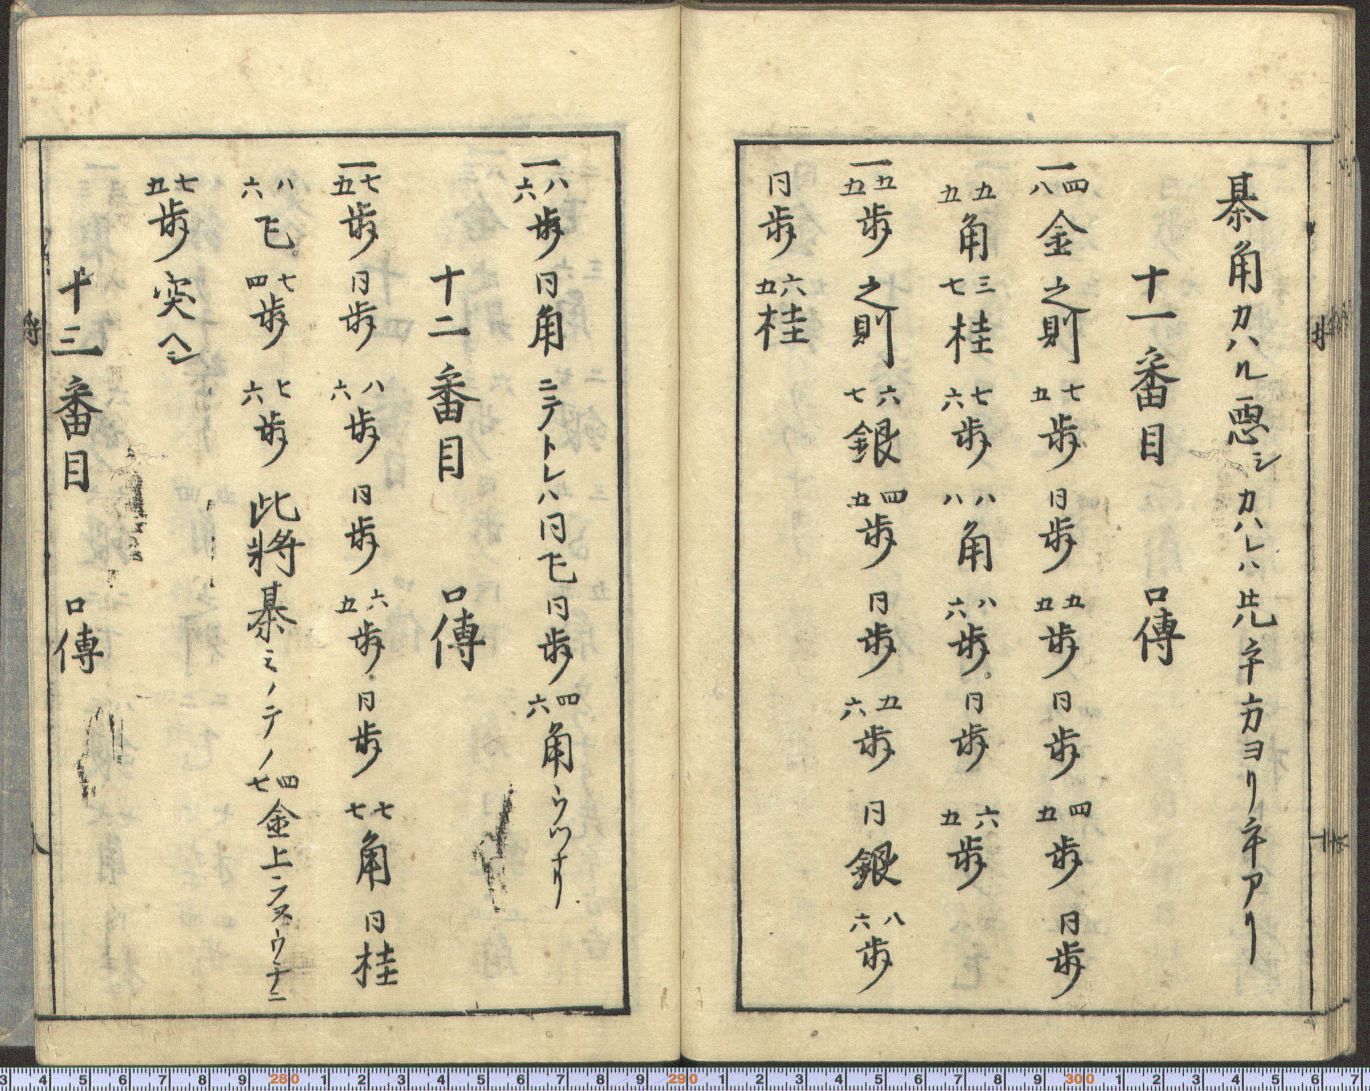 棊角カハル悪シカハレハ先手方ヨリ手アリ
十一番目 口傳
一 四八金之則 七五歩 同歩 五五歩 同歩 四五歩 同歩
五五角 三七桂 七六歩 八八角 八六歩 同歩 六五歩
一 五五歩之則 六七銀 四五歩 同歩 五六歩 同銀 八六歩
同歩 六五桂
一 八六歩 同角 ニテトレハ同飞同歩 四六角ウツナリ
十二番目 口傳
一 七五歩 同歩 八六歩 同歩 六五歩 同歩 七七角 同桂
八六飞 七四歩 七六歩 此將棊ミノテノ四七金上ラスウチニ
七五歩突ヘシ
十三番目 口傳